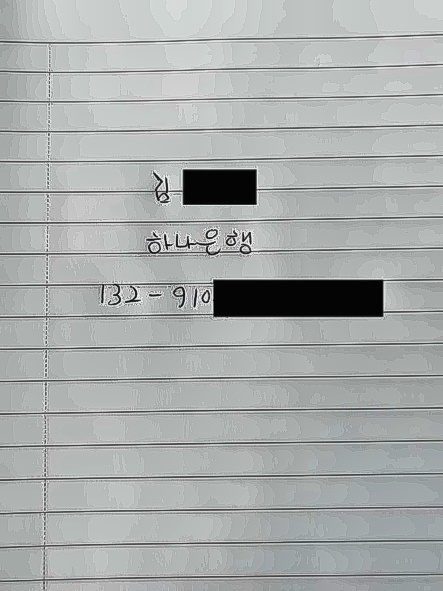 김
하나은행
132-910